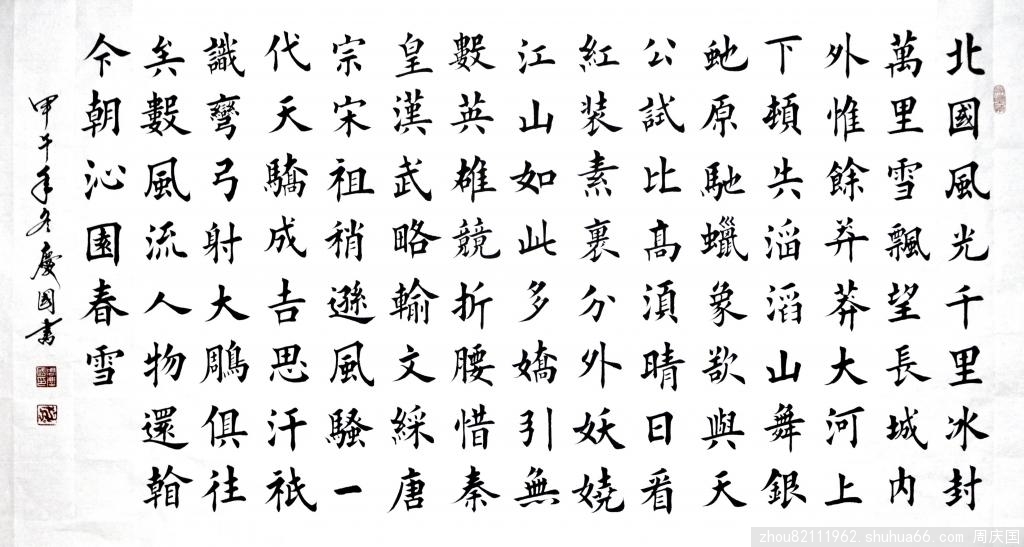 北國風光千里冰封
萬里雪飄望長城內
外惟餘莽莽大河上
下頓失滔滔山舞銀
虵原馳蠟象欲與天
公試比高湏晴日看
紅裝素裹分外妖嬈
江山如此多嬌引無
數英雄競折腰惜秦
皇漢武略輸文綵唐
宗宋祖稍遜風騷一
代天驕成吉思汗衹
識彎弓射大鵰俱往
矣數風流人物還看
今朝沁園春雪
甲午年冬慶國書
zhou82111962.shuhua66.com 周庆国